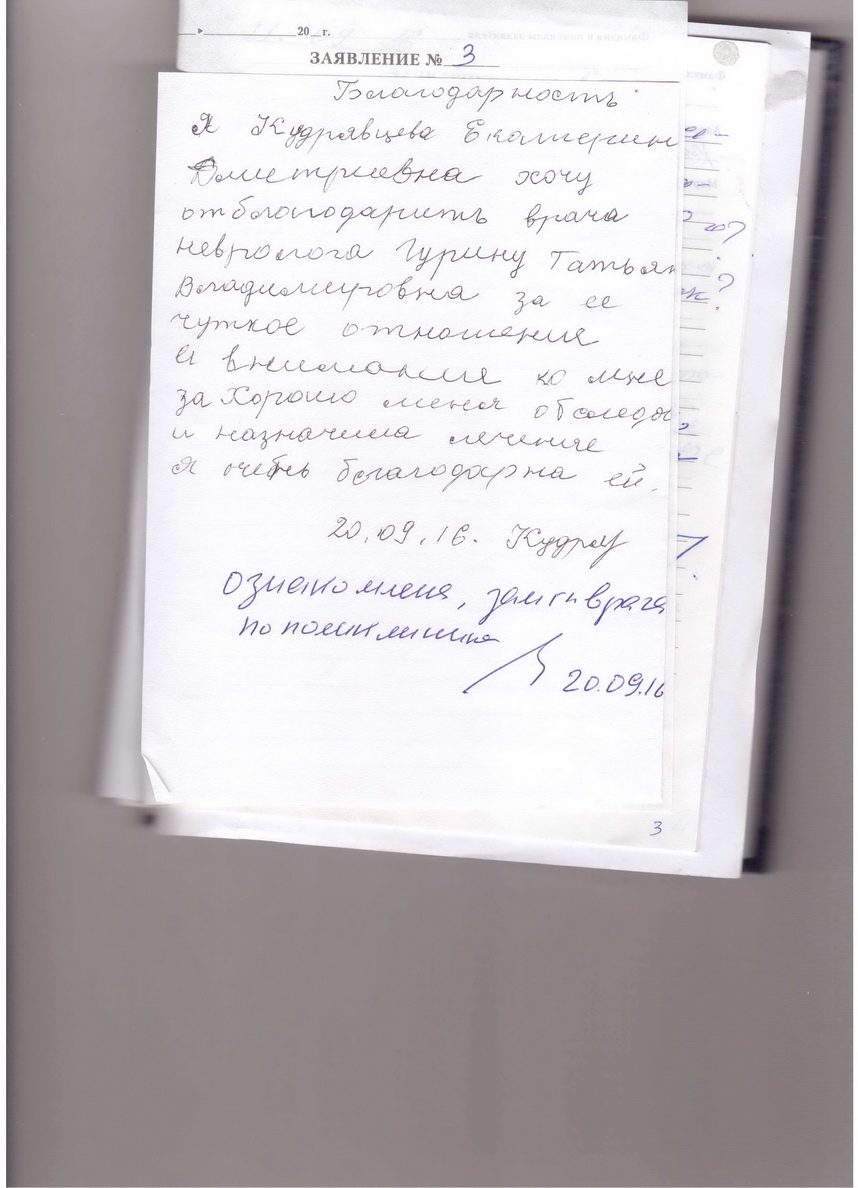 20 г.
ЗАЯВЛЕНИЕ № 3
Благодарность
Я Кудрявцева Екатерин
Дмитриевна хочу
отблагодарить врача
невролога Гурину Татьян
Владимировна за ее
чуткое отношения
и внимания ко мне
за хорошо меня обследо
и назначила лечение
я очень благодарна ей.
20.09.16. Кудряв
ознакомлена, зам гл врача
по поликлинике
20.09.16
3